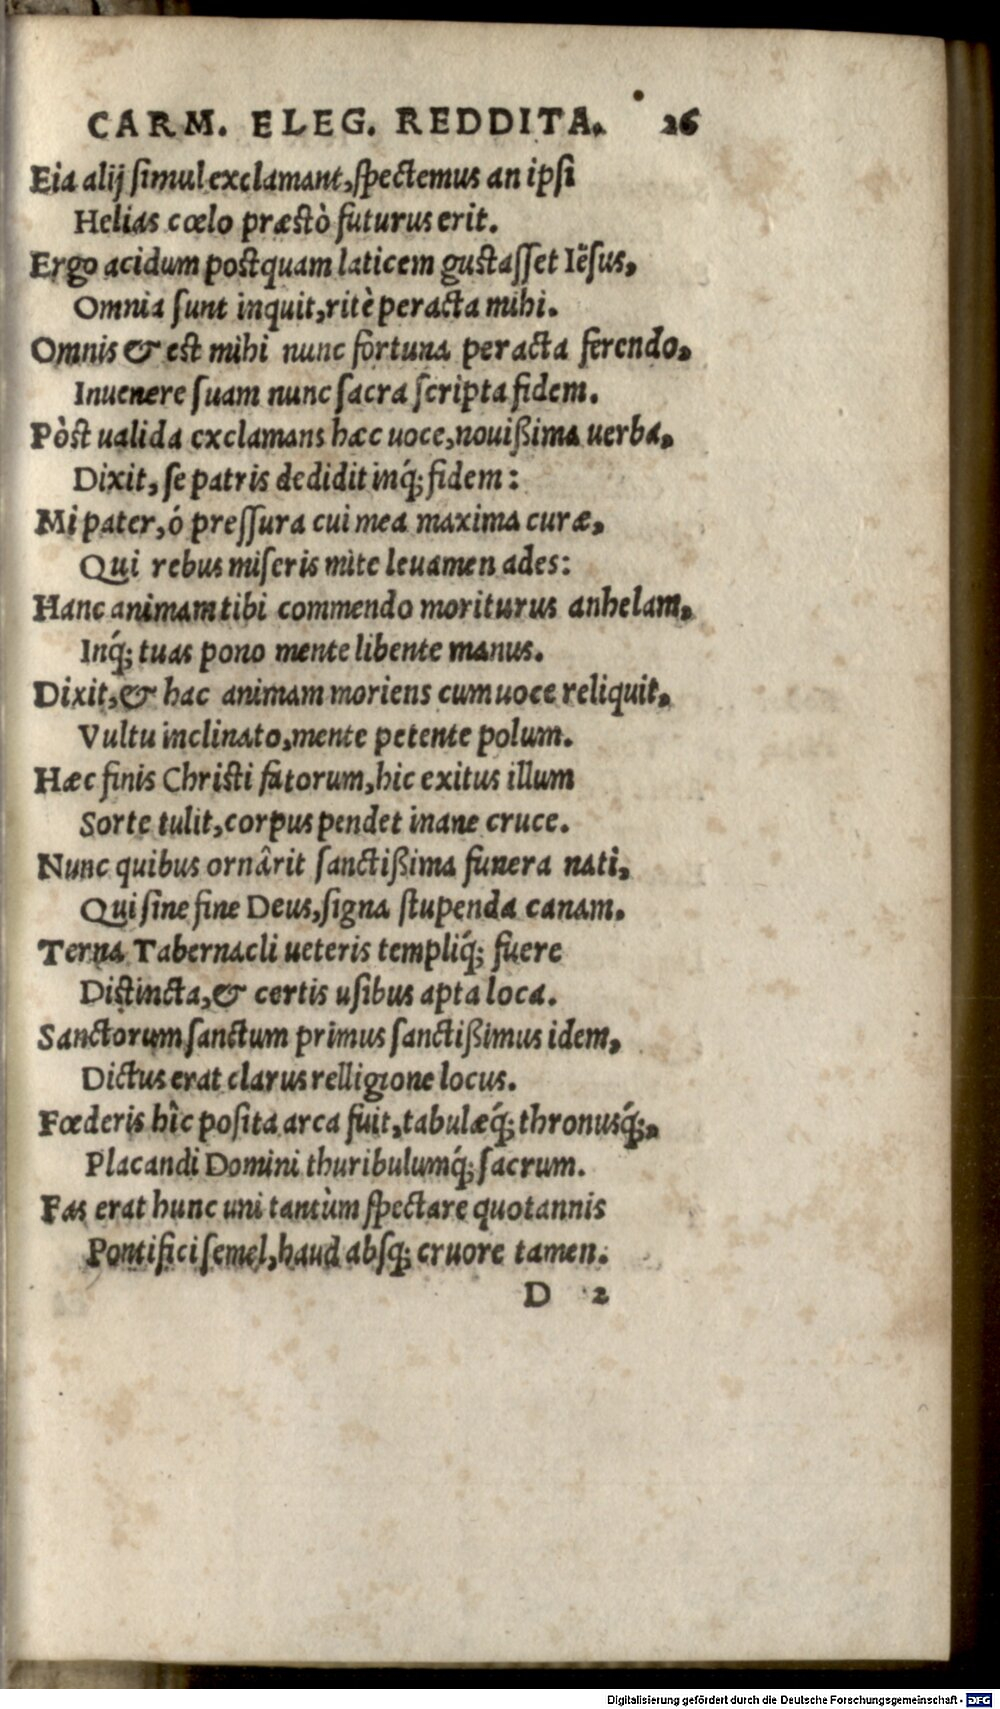 CARM. ELEG. REDDITA. 26
Eia alij simul exclamant, spectemus an ipsi
Helias cœlo præstò futurus erit.
Ergo acidum postquam laticem gustasset Iësus,
Omnia sunt inquit, ritè peracta mihi.
Omnis & est mihi nunc fortuna peracta ferendo,
Inuenere suam nunc sacra scripta fidem.
Pòst ualida exclamans hæc uoce, nouißima uerba,
Dixit, se patris dedidit inq́; fidem:
Mi pater, ó pressura cui mea maxima curæ,
Qui rebus miseris mite leuamen ades:
Hanc animam tibi commendo moriturus anhelam,
Inq́; tuas pono mente libente manus.
Dixit, & hac animam moriens cum uoce reliquit,
Vultu inclinato, mente petente polum.
Hæc finis Christi fatorum, hic exitus illum
Sorte tulit, corpus pendet inane cruce.
Nunc quibus ornârit sanctißima funera nati,
Qui sine fine Deus, signa stupenda canam.
Terna Tabernacli ueteris templiq́; fuere
Distincta, & certis usibus apta loca.
Sanctorum sanctum primus sanctißimus idem,
Dictus erat clarus relligione locus.
Fœderis hîc posita arca fuit, tabulæq́; thronusq́;,
Placandi Domini thuribulumq́; sacrum.
Fas erat hunc uni tantùm spectare quotannis
Pontifici semel, haud absq; cruore tamen.
D 2
Digitalisierung gefördert durch die Deutsche Forschungsgemeinschaft - DFG